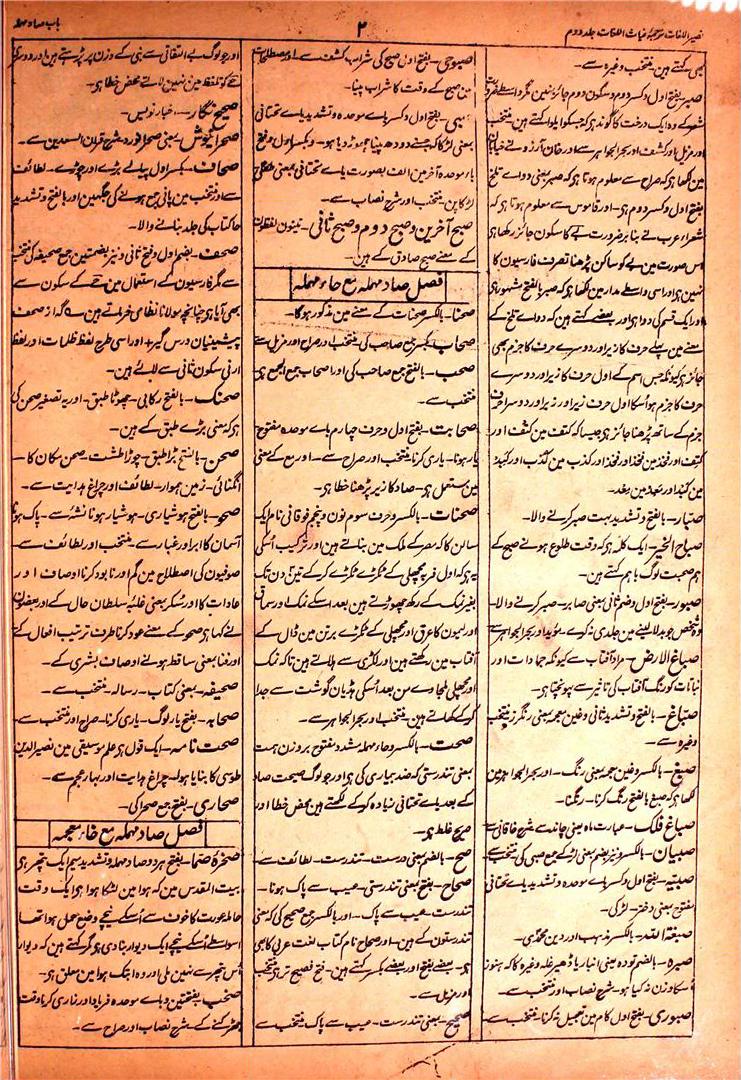 نصیر اللغات ترجمۂ غیاث اللغات جلد دوم
۲
باب صاد مہملہ
بھی کہتے ہین۔ منتخب وغیرہ سے۔
صبر۔ بفتح اول وکسر دوم وسکون دوم جائز نہین مگر واسطے ضرورت
شعر کے وہ ایک درخت کا گوند ہے جسکو ایلوا کہتے ہین۔ منتخب
اور مزیل اور کشف اور بحر الجواہر سے اور خان آرزو نے خیابان
مین لکھا ہے کہ صراح سے معلوم ہوتا ہے کہ صبر بمعنی دواے تلخ
بفتح اول وکسر دوم ہے۔ اور قاموس سے معلوم ہوتا ہے کہ
شعراء عرب نے بنا بر ضرورت بے کا سکون جائز رکھا ہے
اس صورت مین بے کو ساکن پڑھنا تصرف فارسیون کا
نہین ہے اور اسی واسطے مدار مین لکھا ہے کہ صبر بالفتح مشہور ہے
اور ایک قسم کی دوا ہے اور بعضے کہتے ہین کہ دواے تلخ کے
معنے مین پہلے حرف کا زیر اور دوسرے حرف کا جزم بھی
جائز ہے کیونکہ جس اسم کے اول حرف زبر اور دوسرے
حرف کا جزم ہو اُسکا اول حرف زیر اور زبر اور دوسرا حرف
جزم کے ساتھ پڑھنا جائز ہے جیسا کہ کتف مین کتف اور
کتف اور فخذ مین فخذ اور فخذ اور کذب مین کذب اور کبد
مین کبد اور معد مین معد۔
صبّار۔ بالفتح وتشدید بہت صبر کرنے والا۔
صباح الخیر۔ ایک کلمہ ہے کہ وقت طلوع ہونے صبح کے
ہم صحبت لوگ باہم کہتے ہین۔
صبور۔ بفتح اول وضم ثانی بمعنی صابر۔ صبر کرنے والا۔
وہ شخص جو بدلا لینے مین جلدی نہ کرے۔ مؤید اور بحر الجواہر سے
صباغ الارض۔ مراد آفتاب سے کیونکہ جمادات اور
نباتات کو رنگ آفتاب کی تاثیر سے پہونچتا ہے۔
صبّاغ۔ بالفتح وتشدید ثانی وغین معجمہ بمعنی رنگریز منتخب
وغیرہ سے۔
صبغ۔ بالکسر وغین معجمہ بمعنی رنگ۔ اور بحر الجواہر مین
لکھا ہے کہ صبغ بالفتح رنگ کرنا۔ رنگنا۔
صباغ فلک۔ عبارت ماہ یعنی چاند سے شرح خاقانی سے
صبیان۔ بالکسر ونیز بضم بمعنی لڑکے جمع صبی کی منتخب سے
صبیّہ۔ بفتح اول وکسر باے موحدہ وتشدید یاے تحتانی
مفتوح بمعنی دختر۔ لڑکی۔
صبغۃ اللہ۔ بالکسر مذہب اور دین محمدی۔
صبرہ۔ بالضم تودہ یعنی انبار یا ڈھیر غلہ وغیرہ کا کہ ہنوز
اسکا وزن نہ کیا ہو۔ شرح نصاب اور منتخب سے۔
صبوری۔ بفتح اول کام مین تعجیل نہ کرنا۔ منتخب سے
صبوحی۔ بفتح اول صبح کی شراب کشف سے اور مصطلحات
مین صبح کے وقت کا شراب پینا۔
صبی۔ بفتح اول وکسر باے موحدہ وتشدید یاے تحتانی
بمعنی لڑکا کہ جسنے دودھ پینا چھوڑ دیا ہو۔ وبکسر اول وفتح
باء موحدہ آخر مین الف بصورت یاے تحتانی بمعنی طفلی
لڑکا پن۔ منتخب اور شرح نصاب سے۔
صبح آخرین وصبح دوم وصبح ثانی۔ تینون لفظون
کے معنے صبح صادق کے ہین۔
فصل صاد مہملہ مع حاء مہملہ
صحنا۔ بالکسر صحنات کے معنے مین مذکور ہوگا۔
صحاب۔ بکسر جمع صاحب کی۔ منتخب اور صراح اور مزیل سے
صحب۔ بالفتح جمع صاحب کی اور اصحاب جمع الجمع ہے
منتخب سے۔
صحابت۔ بفتح اول وحرف چہارم باے موحدہ مفتوح
یار ہونا۔ یاری کرنا۔ منتخب اور صراح سے۔ اور مع کے معنی
مین مستعمل ہے۔ صاد کا زیر پڑھنا خطا ہے۔
صحنات۔ بالکسر وحرف سوم نون وپنجم فوقانی نام ایک
سالن کا کہ مصر کے ملک مین بناتے ہین اور ترکیب اُسکی
یہ ہے کہ اول فربہ مچھلی کے ٹکڑے ٹکڑے کر کے تین دن تک
بغیر نمک کے رکھ چھوڑتے ہین بعد اسکے نمک اور سماق
اور لیمون کا عرق اور مچھلی کے ٹکڑے برتن مین ڈال کے
آفتاب مین رکھتے ہین اور لکڑی سے ہلاتے ہین تاکہ نمک
اور مچھلی ملجاوے من بعد اُسکی ہڈیان گوشت سے جدا
کر کے کھاتے ہین۔ منتخب اور بحر الجواہر سے۔
صحت۔ بالکسر وحاء مہملہ مشدد مفتوح بر وزن ہمت
بمعنی تندرستی کہ ضد بیماری کی ہے اور جو لوگ صحت صاد
کے بعد یاے تحتانی زیادہ کر کے لکھتے ہین محض خطا اور
صریح غلط ہے۔
صح۔ بالضم بمعنی درست۔ تندرست۔ لطائف سے
صحاح۔ بفتح بمعنی تندرستی۔ عیب سے پاک ہونا۔
تندرست۔ عیب سے پاک۔ اور بالکسر جمع صحیح کی کہ بمعنی
تندرستون کے ہین۔ اور صحاح نام کتاب لغت عربی کا بھی
ہے۔ بعضے بفتح اور بعضے بکسر کہتے ہین۔ فتح فصیح تر ہے منتخب
اور مزیل سے۔
صحیح۔ بمعنی تندرست۔ عیب سے پاک منتخب سے
اور جو لوگ بے التفاتی سے نبی کے وزن پر پڑھتے ہین اور دوسری
حے کو تلفظ مین نہین لاتے محض خطا ہے۔
صحیح نگار۔ اخبار نویس۔
صحرا کوش۔ بمعنی صحرا نورد۔ شرح قران السعدین سے۔
صحاف۔ بکسر اول پیالے بڑے اور چوڑے۔ لطائف
سے اور منتخب مین پانی جمع ہونے کی جگہین اور بالفتح وتشدید
حا کتاب کی جلد بنانے والا۔
صحف۔ بضم اول وفتح ثانی ونیز بضمتین جمع صحیفہ کی منتخب
سے مگر فارسیون کے استعمال مین حے کے سکون سے
بھی آیا ہے چنانچہ مولانا نظامی فرماتے ہین ے گہ از صحف
پیشینیان درس گیر + اور اسی طرح لفظ ظلمات اور لفظ
ارنی سکون ثانی سے لائے ہین۔
صحنک۔ بالفتح رکابی۔ چھوٹا طبق۔ اور یہ تصغیر صحن کی
ہے کہ بمعنی بڑے طبق کے ہین۔
صحن۔ بالفتح بڑا طبق۔ چوڑا طشت۔ صحن مکان کا۔
انگنائی۔ زمین ہموار۔ لطائف اور چراغ ہدایت سے۔
صحو۔ بالفتح ہوشیاری۔ ہوشیار ہونا نشہ سے۔ پاک ہونا
آسمان کا ابر اور غبار سے۔ منتخب اور لطائف سے۔
صوفیون کی اصطلاح مین گم اور نابود کرنا اوصاف اور
عادات کا اور سُکر بمعنی غلبۂ سلطان حال کے اور بعضون
نے کہا ہے صحو کے معنے عود کرنا طرف ترتیب افعال کے
اور فنا بمعنی ساقط ہونے اوصاف بشری کے۔
صحیفہ۔ بمعنی کتاب۔ رسالہ۔ منتخب سے۔
صحابہ۔ بفتح یار لوگ۔ یاری کرنا۔ صراح اور منتخب سے۔
صحت نامہ۔ ایک قول ہے علم موسیقی مین نصیر الدین
طوسی کا بنایا ہوا۔ چراغ ہدایت اور بہار عجم سے۔
صحاری۔ بفتح جمع صحرا کی۔
فصل صاد مہملہ مع خاء معجمہ
صخرۂ صما۔ بفتح ہر دو صاد مہملہ وتشدید میم ایک پتھر ہے
بیت المقدس مین کہ ہوا مین لٹکا ہوا ہے ایک وقت
حاملہ عورت کا خوف سے اُسکے نیچے وضع حمل ہوا تھا
اسواسطے اُسکے نیچے ایک دیوار بنا دی ہے مگر کہتے ہین کہ دیوار
اُس پتھر سے نہین ملی اور وہ ابتک ہوا مین معلق ہے۔
صخب۔ بفتحتین وباے موحدہ فریاد اور زاری کرنا وقت
جھگڑنے کے۔ شرح نصاب اور صراح سے۔